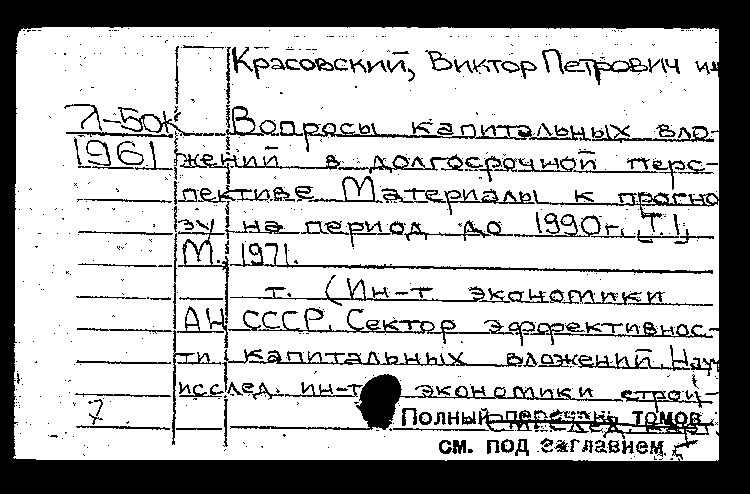 Красовский, Виктор Петрович и
Л-50к
Вопросы капитальных вло-
1961
жений в долгосрочной перс-
пективе Материалы к прогно
зу на период до 1990г. Т. 1,
М. 1971.
т. (Ин-т экономики
АН СССР. Сектор эффективнос-
ти капитальных вложений. Науч
исслед. ин-т экономики строи-
7
Полный перечень томов
см. под заглавием